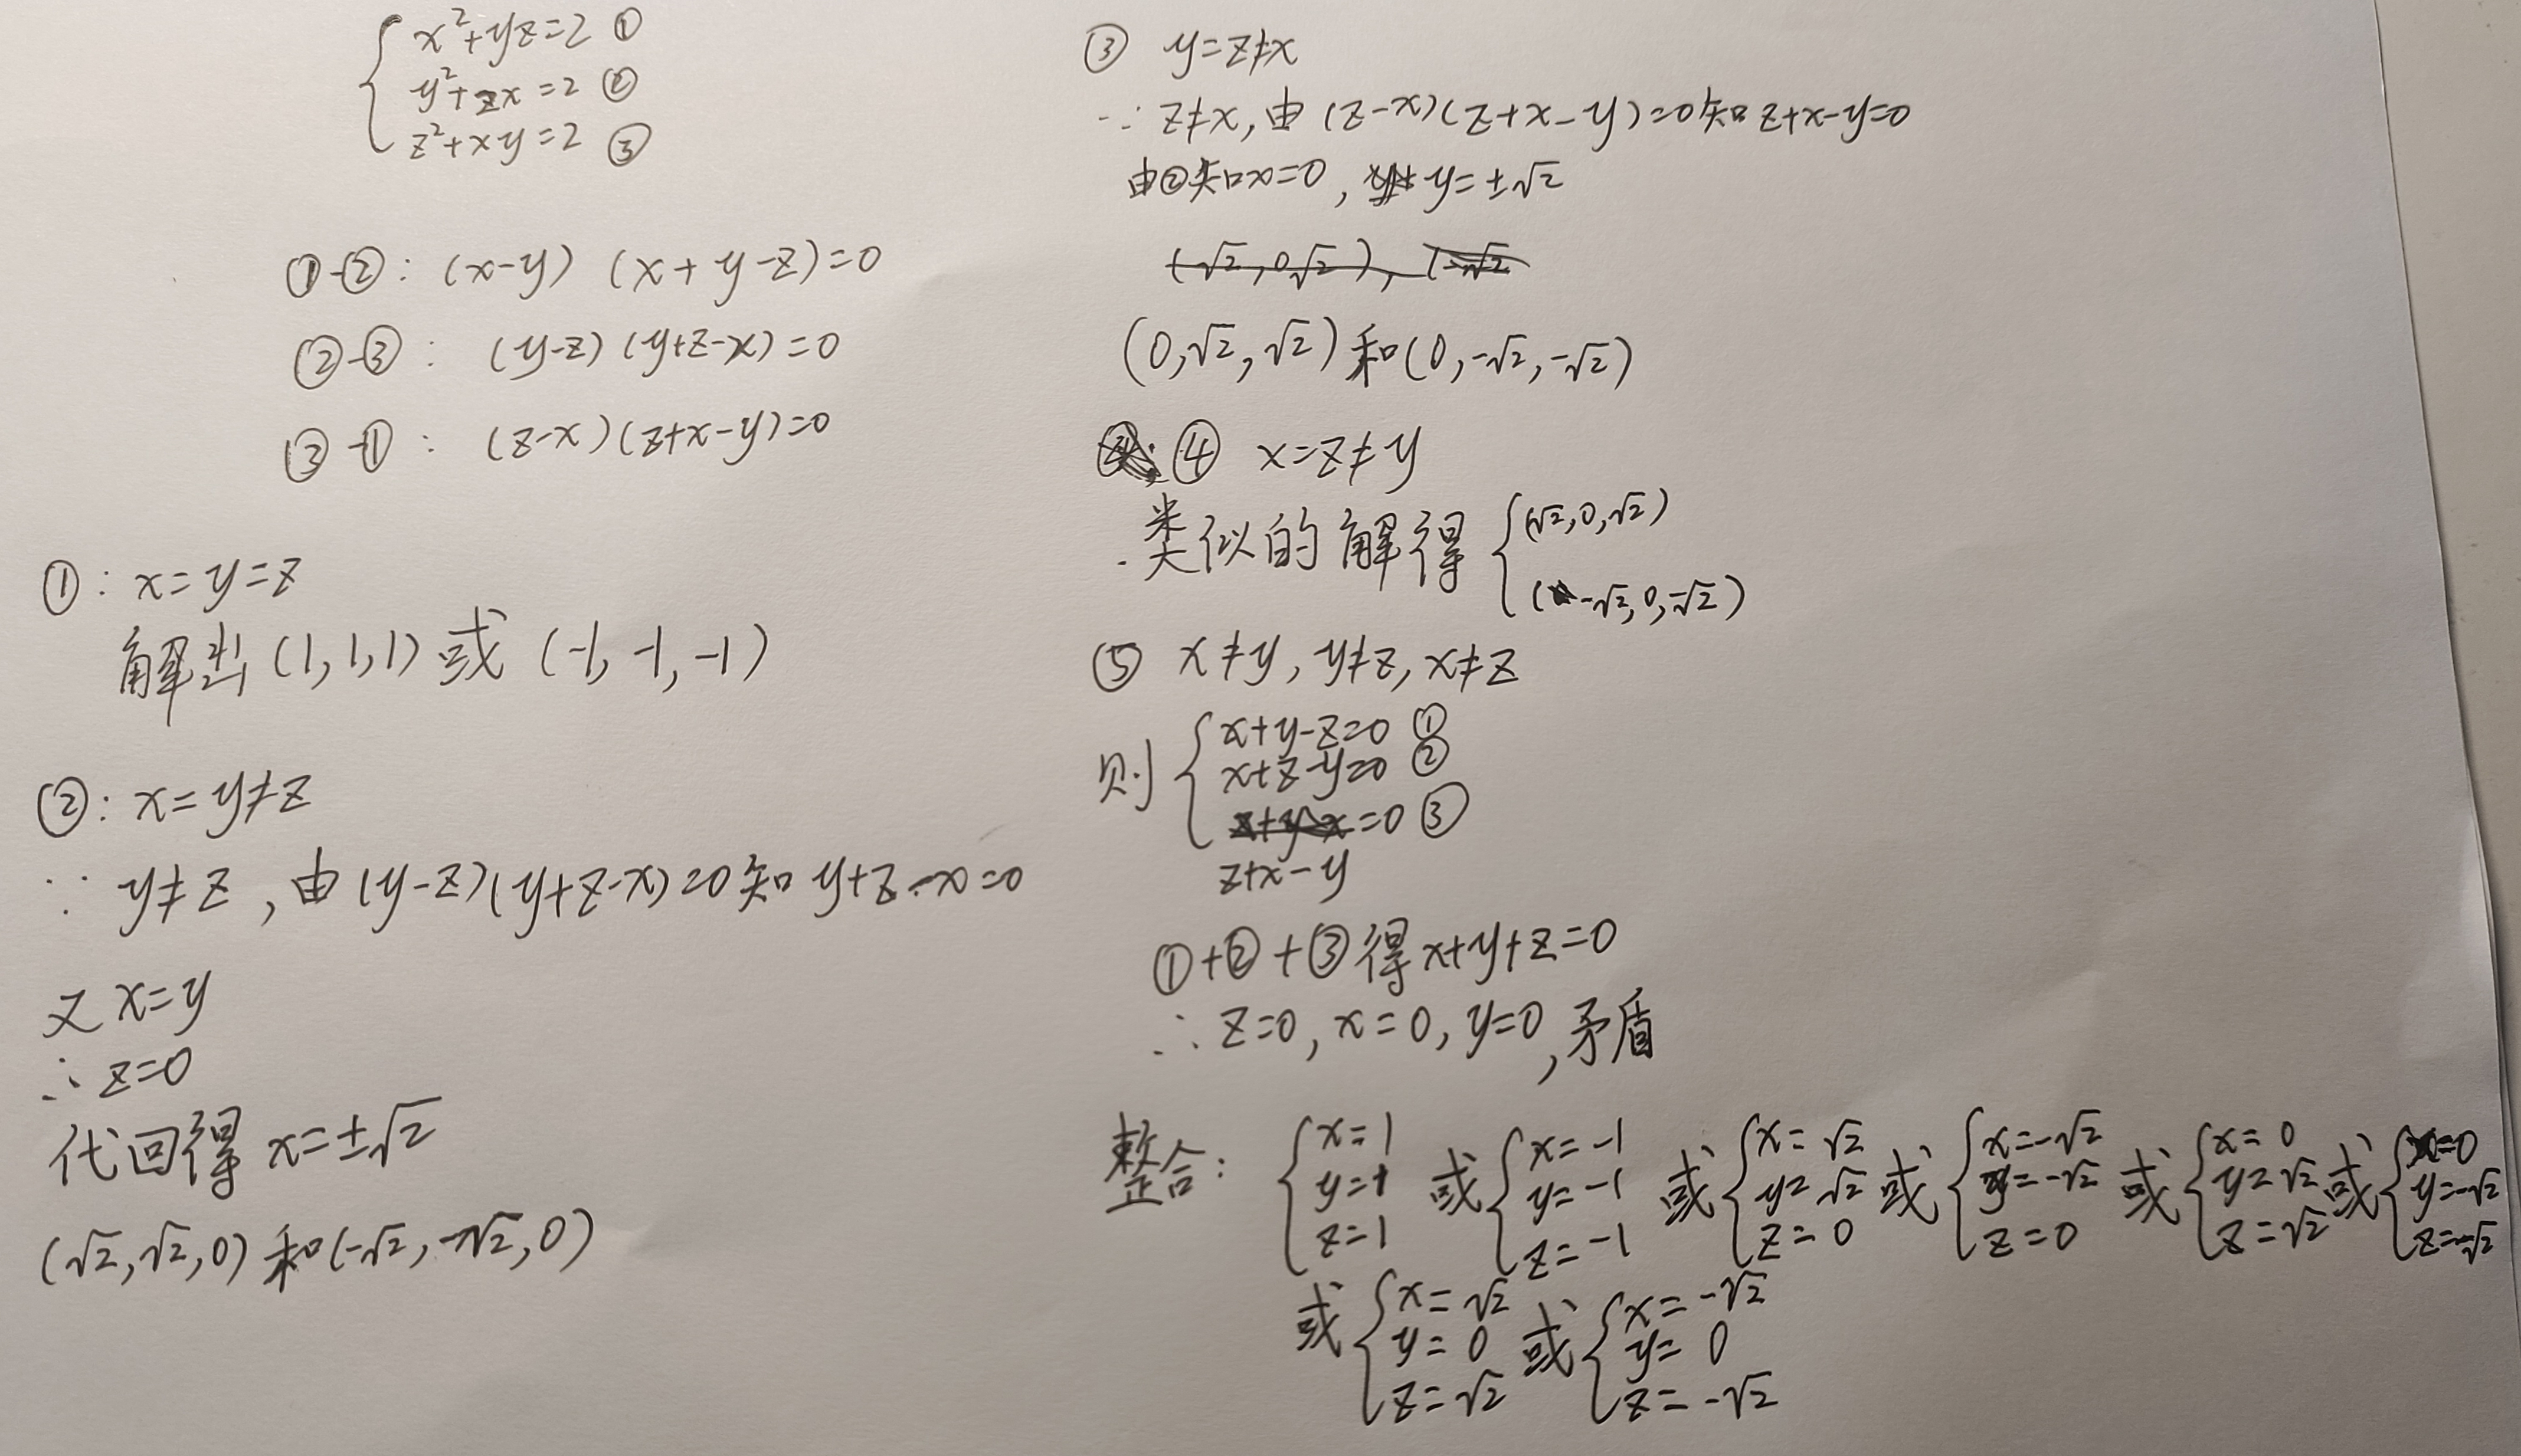 x²+yz=2 ①
y²+zx=2 ②
z²+xy=2 ③
①-②: (x-y) (x+y-z)=0
②-③: (y-z) (y+z-x)=0
③-①: (z-x)(z+x-y)=0
①: x=y=z
解出(1,1,1)或(-1,-1,-1)
②: x=y≠z
∵ y≠z,由(y-z)(y+z-x)=0知y+z-x=0
又x=y
∴z=0
代回得x=±√2
(√2,√2,0)和(-√2,-√2,0)
③ y=z≠x
∵ z≠x,由(z-x)(z+x-y)=0知z+x-y=0
由②知x=0, y=±√2
(√2,0√2), (-√2
(0,√2,√2)和(0,-√2,-√2)
④ x=z≠y
类似的解得 { (√2,0,√2)
(-√2,0,-√2)
⑤ x≠y, y≠z, x≠z
则 { x+y-z=0 ①
x+z-y=0 ②
z+y-x=0 ③
z+x-y
①+②+③得x+y+z=0
∴z=0, x=0, y=0,矛盾
整合: { x=1 y=1 z=1 或 { x=-1 y=-1 z=-1 或 { x=√2 y=√2 z=0 或 { x=-√2 y=-√2 z=0 或 { x=0 y=√2 z=√2 或 { x=0 y=-√2 z=-√2
或 { x=√2 y=0 z=√2 或 { x=-√2 y=0 z=-√2